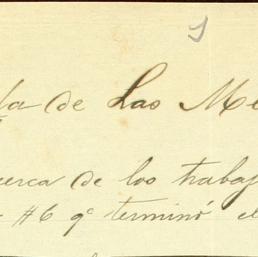 de Las Me
erca de los trabaj
#6 qe terminó el